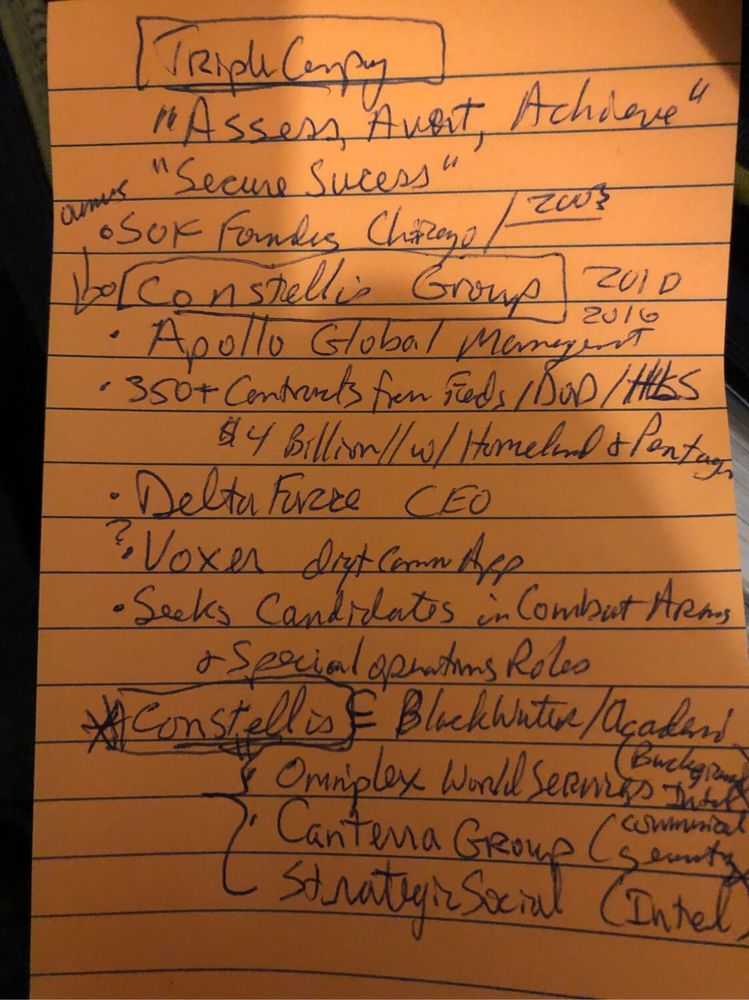 Triple Canopy
"Assess, Avert, Achieve"
"Secure Sucess"
• SOF Founders Chicago / 2003
Constellis Group 2010
2016
• Apollo Global Management
• 350+ Contracts from Feds / DoD / HLS
$4 Billion // w/ Homeland & Pentagon
• Delta Force CEO
? • Voxer App
• Seeks Candidates in Combat Arms
& Special operations Roles
Constellis = BlackWater / Academi
• Omniplex World Services (Background Intel)
• Canterra Group (Commercial Security)
Strategic Social (Intel)